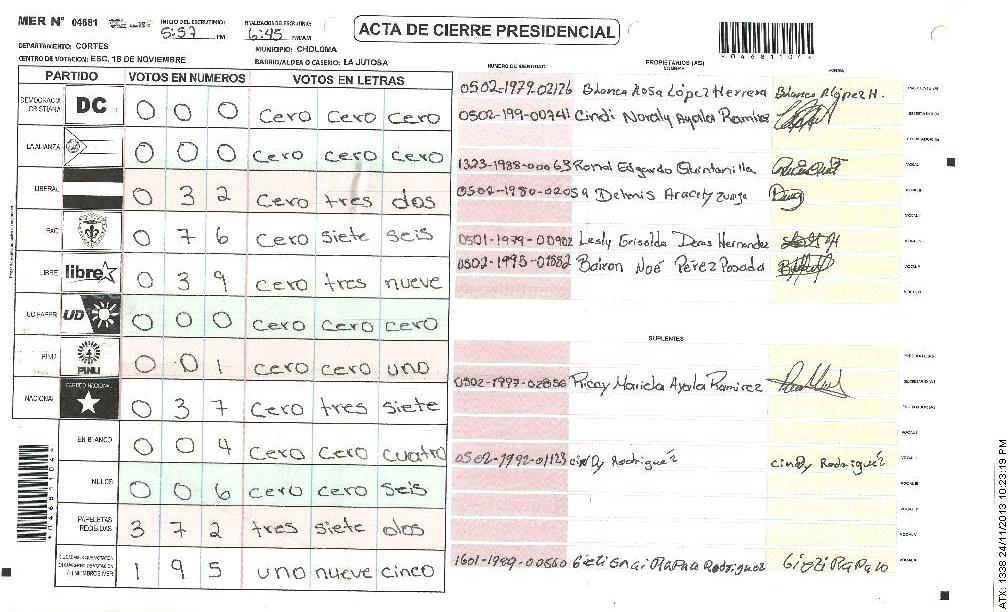 MER N° 04681
INICIO DEL ESCRUTINIO:
5:57 PM
FINALIZACION DEL ESCRUTINIO:
6:45 PM/AM
ACTA DE CIERRE PRESIDENCIAL
DEPARTAMENTO: CORTES
MUNICIPIO: CHOLOMA
CENTRO DE VOTACION: ESC. 18 DE NOVIEMBRE
BARRIO/ALDEA O CASERIO: LA JUTOSA
PARTIDO VOTOS EN NUMEROS VOTOS EN LETRAS
DEMOCRACIA CRISTIANA DC 0 0 0 cero cero cero
LA ALIANZA 0 0 0 cero cero cero
LIBERAL 0 3 2 cero tres dos
PAC 0 7 6 cero siete seis
LIBRE libre 0 3 9 cero tres nueve
UD FAPER UD 0 0 0 cero cero cero
PINU PINU 0 0 1 cero cero uno
NACIONAL PARTIDO NACIONAL 0 3 7 cero tres siete
EN BLANCO 0 0 4 cero cero cuatro
NULOS 0 0 6 cero cero seis
PAPELETAS RECIBIDAS 3 7 2 tres siete dos
1 9 5 uno nueve cinco
NUMERO DE IDENTIDAD PROPIETARIOS (AS) NOMBRE FIRMA
0502-1979-02126 Blanca Rosa López Herrera Blanca R López H.
0502-199-00341 Cindi Noraly Ayala Ramirez
1323-1988-00063 Ronal Edgardo Quintanilla
0502-1980-02059 Aracely Zuniga
0501-1979-00902 Lesly Grisolda Deras Hernandez
0502-1995-01552 Bairon Noé Pérez Posada
SUPLENTES
0502-1997-02856 Mariela Ayala Ramirez
0502-1992-01123 cindy Rodriguez cindy Rodriguez
1601-1989-00560 Rodriguez
*04681104*
ATX: 1338 24/11/2013 10:23:19 PM